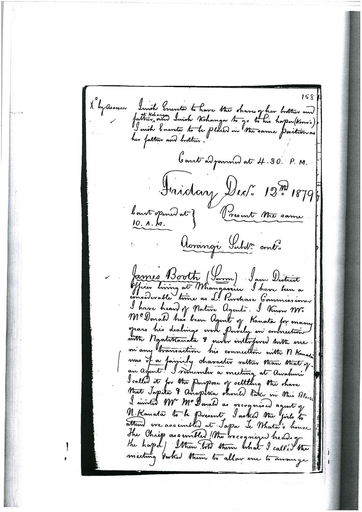 158
Xd by assessor I wish Enereta to have the share of her brother and
father, and I wish Kehanga to go to his hapu (Kiwi's)
I wish Enereta to be placed in the same position as
her father and brother.
Court adjourned at 4.30. P.M.
Friday Decr. 12th 1879
Court opened at } Present the same
10. A.M.
Aorangi Subdn. contd.
James Booth (Sworn) I am District
Officer living at Whanganui I have been a
considerable time as Ld Purchase Commissioner
I have heard of Native Agents. I know Mr.
McDonald has been Agent of Kauata for many
years his dealings were purely in connection
with Ngatikauata & never interfered with one
in any transaction his connection with N Kauata
was of a friendly character rather than that of
an Agent. I remember a meeting at Awahuri
I called it for the purpose of settling the share
that Tapita & Anapeka should take in this Block
I invited Mr. McDonald as recognised agent of
N. Kauata to be present, I asked the Girls to
attend we assembled at Tapa Te Whata's house
the Chiefs assembled (the recognized heads of
the hapu) I then told them what I called the
meeting asked them to allow me to arrange